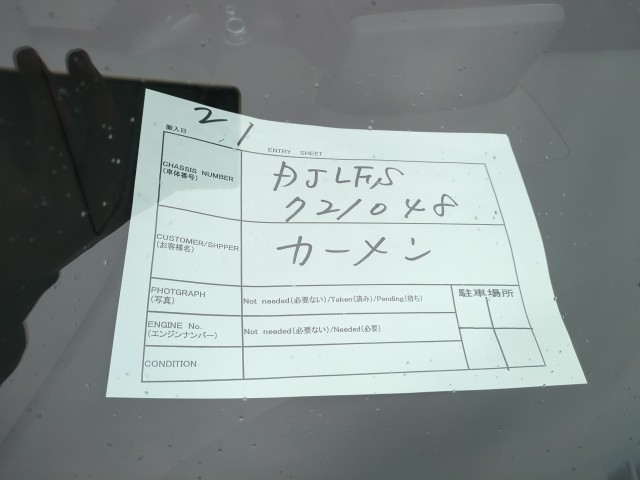 搬入日 2/1
ENTRY SHEET
CHASSIS NUMBER
(車体番号)
DJLFS
721048
CUSTOMER/SHPPER
(お客様名)
カーメン
PHOTGRAPH
(写真)
Not needed(必要ない)/Taken(済み)/Pending(待ち)
駐車場所
ENGINE No.
(エンジンナンバー)
Not needed(必要ない)/Needed(必要)
CONDITION